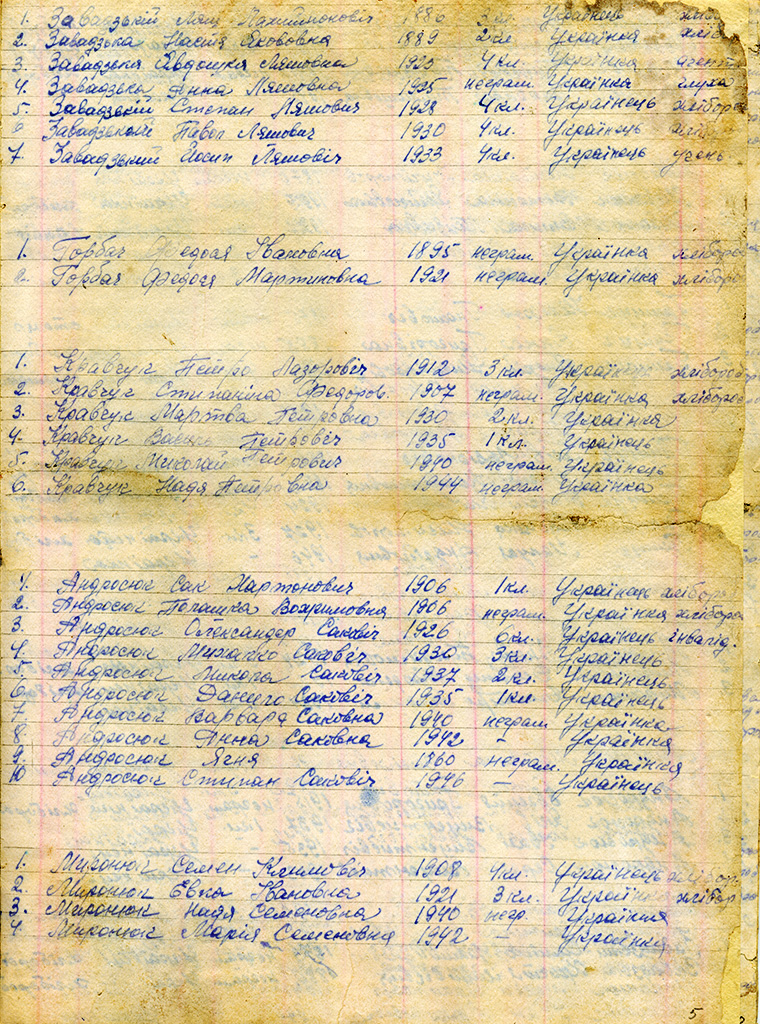 1. Завадзький Лящ Пахимонович 1886 2 кл. Українець хліб
2. Завадзька Настя Якововна 1889 2 кл Українка хліб
3. Завадзька Євдошка Ляшовна 1920 4 кл. Українка агент
4. Завадзька Анна Ляшовна 1925 неграм. Українка глуха
5. Завадзский Степан Ляшович 1928 4 кл. Українець хлібор
6 Завадзский Павол Ляшович 1930 4 кл. Українець
7. Завадзький Йосип Ляшовіч 1933 4 кл. Українець учень
1. Горбач Федося Івановна 1895 неграм. Українка хлібороб
2. Горбач Федося Мартиновна 1921 неграм. Українка хлібороб
1. Кравчук Петро Лазоровіч 1912 3 кл. Українец хлібороб
2. Кравчук Степаніна Федоров. 1907 неграм. Українка хліборо
3. Кравчук Мартва Петровна 1930 2 кл. Українка
4. Кравчук Василь Петровіч 1935 1 кл. Українець
5. Кравчук Миколай Петрович 1940 неграм. Українець
6. Кравчук Надя Петровна 1944 неграм. Українка
1. Андросюк Сак Мартонович 1906 1 кл. Українець хлібор
2. Андросюк Палашка Вохримовна 1906 неграм. Українка хлібороб
3. Андросюк Олександер Саковіч 1926 0 кл. Українець інвалід.
4. Андросюк Михалко Саковіч 1930 3 кл. Українець
5. Андросюк Микола Саковіч 1937 2 кл. Українець
6 Андросюк Данило Саковіч 1935 1 кл. Українець
7 Андросюк Варвара Саковна 1940 неграм Українка
8 Андросюк Анна Саковна 1942 – Українка
9. Андросюк Ягня 1860 неграм. Українка
10 Андросюк Степан Саковіч 1946 – Українець
1. Миронюк Семен Климовіч 1908 4 кл. Українець хлібор
2. Миронюк Евка Івановна 1921 3 кл. Українка хлібор
3. Миронюк Надя Семеновна 1940 негр. Українка
4. Миронюк Марія Семеновна 1942 – Українка
5